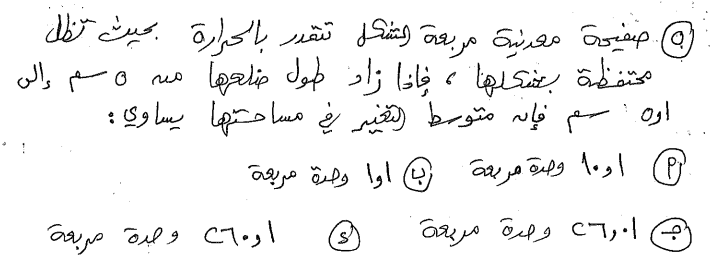 ٥) صفيحة معدنية مربعة الشكل تتمدد بالحرارة بحيث تظل
محتفظة بشكلها ، فإذا زاد طول ضلعها من ٥ سم إلى
٥,١ سم فإن متوسط التغير في مساحتها يساوي :
أ) ١٠,١ وحدة مربعة ب) ١,١ وحدة مربعة
جـ) ٢٦,٠١ وحدة مربعة د) ٢٦٠,١ وحدة مربعة